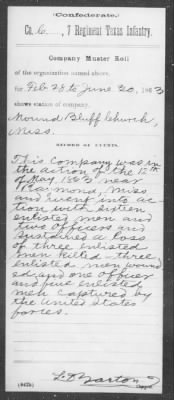 Confederate.
Co. C, 7 Regiment Texas Infantry.
Company Muster Roll
of the organization named above,
for Feb 28 to June 20, 1863
shows station of company,
Mound Bluff Church,
Miss.
RECORD OF EVENTS.
This company was in
the action of the 12th
of May 1863 near
Raymond, Miss
and went into ac-
tion with sixteen
enlisted men and
two officers and
sustained a loss
of three enlisted
men killed three
enlisted men wound
ed and one officer
and five enlisted
men captured by
the United States
forces.
Barton
(642b)
Copyist.